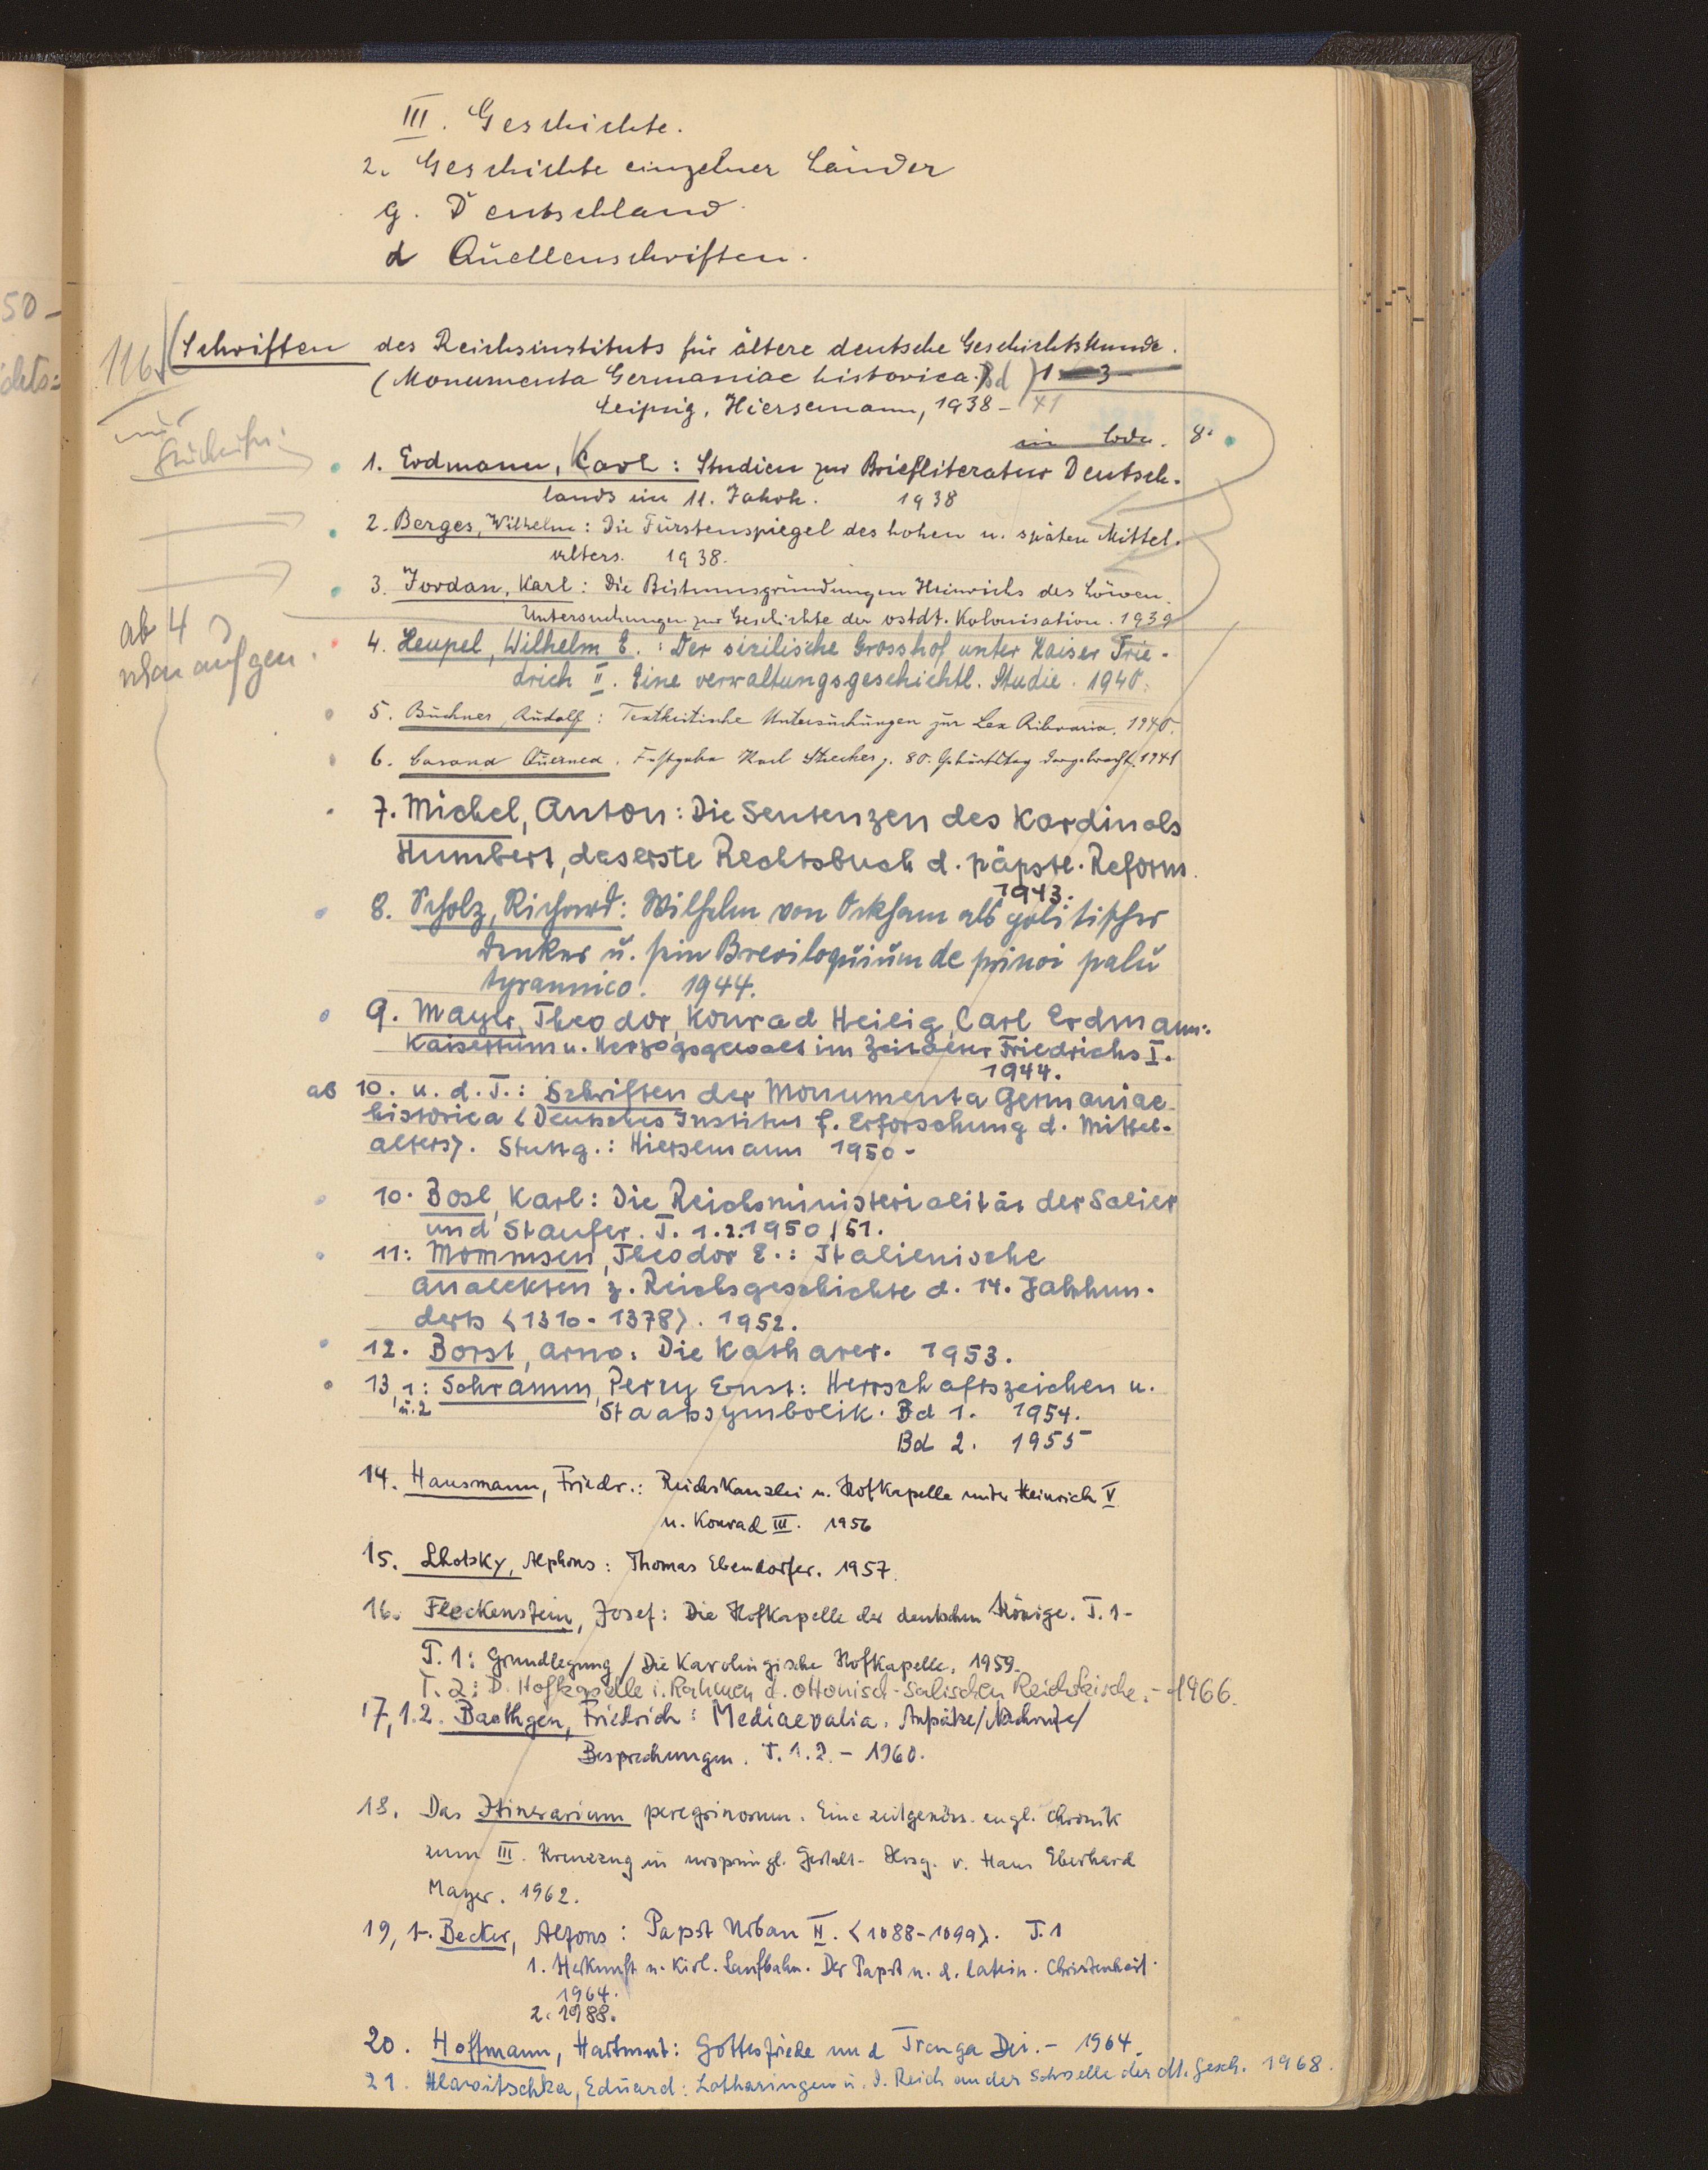 III. Geschichte.
2. Geschichte einzelner Länder
g. Deutschland
d Quellenschriften.
50-
116.
Schriften des Reichsinstituts für ältere deutsche Geschichtskunde.
(Monumenta Germaniae historica.) Bd 1-3
Leipzig, Hiersemann, 1938-41
8°
1. Erdmann, Carl: Studien zur Briefliteratur Deutsch-
lands im 11. Jahrh. 1938
2. Berges, Wilhelm: Die Fürstenspiegel des hohen u. späten Mittel-
alters. 1938.
3. Jordan, Karl: Die Bistumsgründungen Heinrichs des Löwen.
Untersuchungen zur Geschichte der ostdt. Kolonisation. 1939
ab 4
4. Heupel, Wilhelm E.: Der sizilische Grosshof unter Kaiser Frie-
drich II. Eine verwaltungsgeschichtl. Studie. 1940.
5. Buchner, Rudolf: Textkritische Untersuchungen zur Lex Ribvaria. 1940.
6. Corona Quernea. Festgabe Karl Strecker z. 80. Geburtstag dargebracht. 1941
7. Michel, Anton: Die Sentenzen des Kardinals
Humbert, das erste Rechtsbuch d. päpstl. Reform.
1943.
8. Scholz, Richard: Wilhelm von Ockham als politischer
Denker u. sein Breviloquium de principatu
tyrannico. 1944.
9. Mayer, Theodor, Konrad Heilig, Carl Erdmann:
Kaisertum u. Herzogsgewalt im Zeitalter Friedrichs I.
1944.
ab 10. u. d. T.: Schriften der Monumenta Germaniae
historica <Deutsches Institut f. Erforschung d. Mittel-
alters>. Stuttg.: Hiersemann 1950-
10. Bosl, Karl: Die Reichsministerialität der Salier
und Staufer. T. 1.2. 1950/51.
11: Mommsen, Theodor E.: Italienische
Analekten z. Reichsgeschichte d. 14. Jahrhun-
derts <1310-1378>. 1952.
12. Borst, Arno: Die Katharer. 1953.
13,1: Schramm, Percy Ernst: Herrschaftszeichen u.
u. 2 Staatssymbolik. Bd 1. 1954.
Bd 2. 1955
14. Hausmann, Friedr.: Reichskanzlei u. Hofkapelle unter Heinrich V
u. Konrad III. 1956
15. Lhotsky, Alphons: Thomas Ebendorfer. 1957.
16. Fleckenstein, Josef: Die Hofkapelle der deutschen Könige. T. 1-
T. 1: Grundlegung / Die Karolingische Hofkapelle. 1959.
T. 2: D. Hofkapelle i. Rahmen d. ottonisch-salischen Reichskirche. - 1966.
17, 1.2. Baethgen, Friedrich: Mediaevalia. Aufsätze/Nachrufe/
Besprechungen. T. 1.2. - 1960.
18. Das Itinerarium peregrinorum. Eine zeitgenöss. engl. Chronik
zum III. Kreuzzug in ursprüngl. Gestalt. Hrsg. v. Hans Eberhard
Mayer. 1962.
19, 1-. Becker, Alfons: Papst Urban II. <1088-1099>. T. 1
1. Herkunft u. Kirl. Laufbahn. Der Papst u. d. latein. Christenheit.
1964.
2. 1988.
20. Hoffmann, Hartmut: Gottesfriede und Treuga Dei. - 1964.
21. Hlawitschka, Eduard: Lotharingen u. d. Reich an der Schwelle der dt. Gesch. 1968.